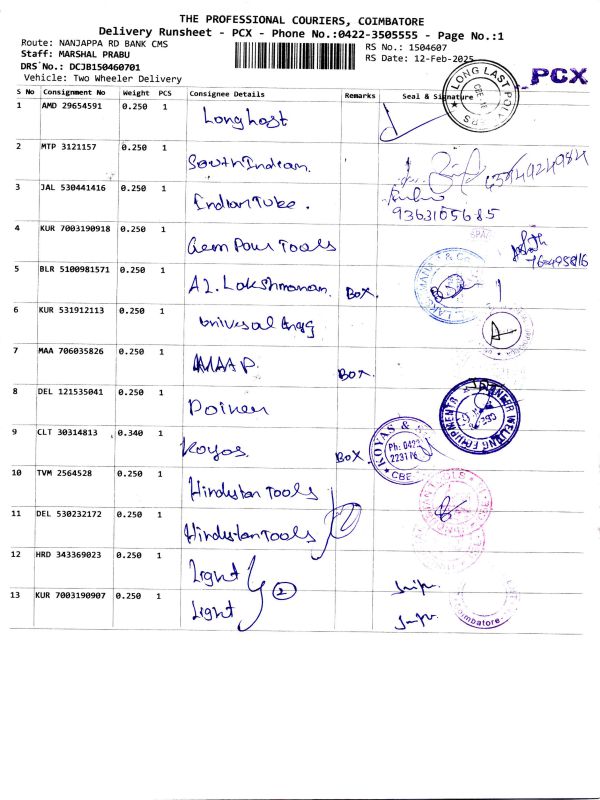 THE PROFESSIONAL COURIERS, COIMBATORE
Delivery Runsheet - PCX - Phone No.:0422-3505555 - Page No.:1
Route: NANJAPPA RD BANK CMS RS No.: 1504607
Staff: MARSHAL PRABU RS Date: 12-Feb-2025
DRS No.: DCJB150460701
Vehicle: Two Wheeler Delivery
PCX
LONG LAST POLY
S No Consignment No Weight PCS Consignee Details Remarks Seal & Signature
1 AMD 29654591 0.250 1 Longlast
2 MTP 3121157 0.250 1 South Indian.
6394924984
3 JAL 530441416 0.250 1 Indian Tube.
9363105685
4 KUR 7003190918 0.250 1 Gem Pour Tools
5 BLR 5100981571 0.250 1 AL. Lakshmanan. BOX.
6 KUR 531912113 0.250 1 Universal Engg
7 MAA 706035826 0.250 1 MAAP. BOX.
8 DEL 121535041 0.250 1 Poineer
PIONEER WELDING EQUIPMENTS
9 CLT 30314813 0.340 1 Koyas. BOX
KOYAS &
Ph: 0422
CBE
10 TVM 2564528 0.250 1 Hindustan Tools
11 DEL 530232172 0.250 1 Hindustan Tools
12 HRD 343369023 0.250 1 Light
2
13 KUR 7003190907 0.250 1 Light
Coimbatore